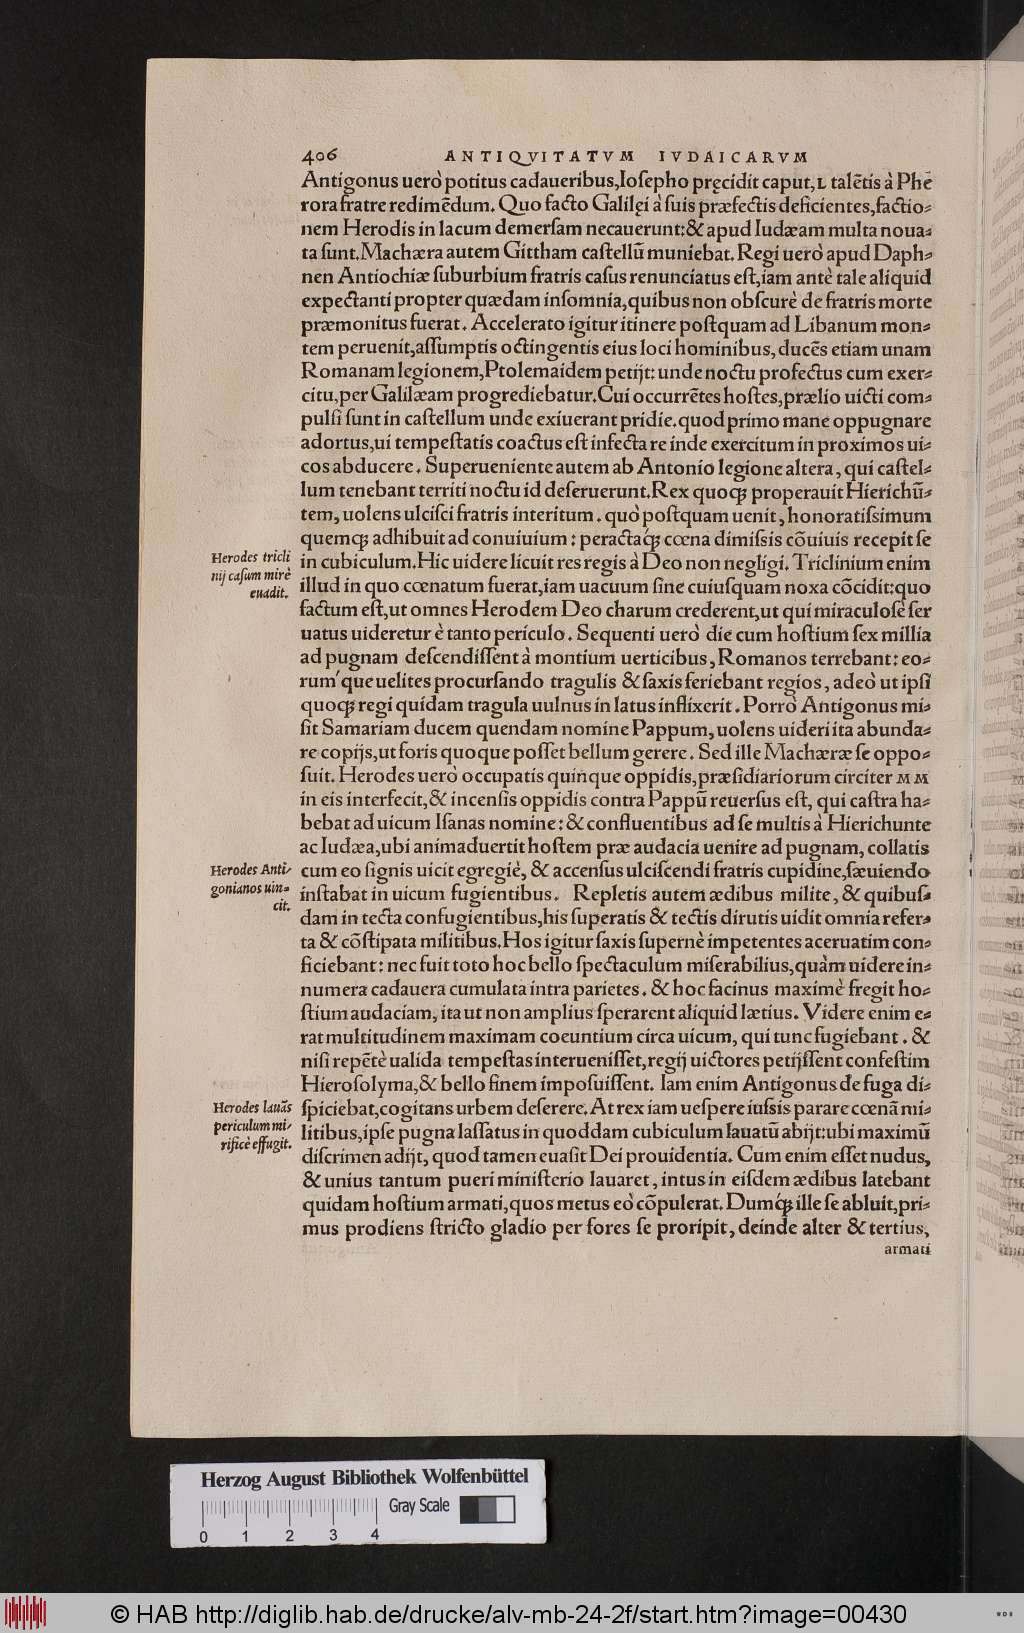 406 ANTIQVITATVM IVDAICARVM
Antigonus uerò potitus cadaueribus,Ioſepho pręcidit caput,L talētis à Phe
rora fratre redimēdum. Quo facto Galilęi à ſuis præfectis deficientes,factio-
nem Herodis in lacum demerſam necauerunt:& apud Iudæam multa noua-
ta ſunt.Machæra autem Gittham caſtellū muniebat.Regi uerò apud Daph-
nen Antiochiæ ſuburbium fratris caſus renunciatus eſt,iam antè tale aliquid
expectanti propter quædam inſomnia,quibus non obſcurè de fratris morte
præmonitus fuerat. Accelerato igitur itinere poſtquam ad Libanum mon-
tem peruenit,aſſumptis octingentis eius loci hominibus, ducēs etiam unam
Romanam legionem,Ptolemaidem petijt: unde noctu profectus cum exer-
citu,per Galilæam progrediebatur.Cui occurrētes hoſtes,prælio uicti com-
pulſi ſunt in caſtellum unde exiuerant pridie.quod primo mane oppugnare
adortus,ui tempeſtatis coactus eſt infecta re inde exercitum in proximos ui-
cos abducere. Superueniente autem ab Antonio legione altera, qui caſtel-
lum tenebant territi noctu id deſeruerunt.Rex quoq; properauit Hierichū-
tem, uolens ulciſci fratris interitum. quò poſtquam uenit, honoratiſsimum
quemq; adhibuit ad conuiuium: peractaq́; cœna dimiſsis cōuiuis recepit ſe
in cubiculum.Hic uidere licuit res regis à Deo non negligi. Triclinium enim
illud in quo cœnatum fuerat,iam uacuum ſine cuiuſquam noxa cōcidit:quo
factum eſt,ut omnes Herodem Deo charum crederent,ut qui miraculoſè ſer
uatus uideretur è tanto periculo. Sequenti uerò die cum hoſtium ſex millia
ad pugnam deſcendiſſent à montium uerticibus, Romanos terrebant: eo-
rum´que uelites procurſando tragulis & ſaxis feriebant regios, adeò ut ipſi
quoq; regi quidam tragula uulnus in latus inflixerit. Porrò Antigonus mi-
ſit Samariam ducem quendam nomine Pappum, uolens uideri ita abunda-
re copijs,ut foris quoque poſſet bellum gerere. Sed ille Machæræ ſe oppo-
ſuit. Herodes uerò occupatis quinque oppidis,præſidiariorum circiter MM
in eis interfecit,& incenſis oppidis contra Pappū reuerſus eſt, qui caſtra ha-
bebat ad uicum Iſanas nomine: & confluentibus ad ſe multis à Hierichunte
ac Iudæa,ubi animaduertit hoſtem præ audacia uenire ad pugnam, collatis
cum eo ſignis uicit egregiè, & accenſus ulciſcendi fratris cupidine,ſæuiendo
inſtabat in uicum fugientibus. Repletis autem ædibus milite, & quibuſ-
dam in tecta confugientibus,his ſuperatis & tectis dirutis uidit omnia refer-
ta & cōſtipata militibus.Hos igitur ſaxis ſupernè impetentes aceruatim con-
ficiebant: nec fuit toto hoc bello ſpectaculum miſerabilius,quàm uidere in-
numera cadauera cumulata intra parietes. & hoc facinus maximè fregit ho-
ſtium audaciam, ita ut non amplius ſperarent aliquid lætius. Videre enim e-
rat multitudinem maximam coeuntium circa uicum, qui tunc fugiebant. &
niſi repētè ualida tempeſtas interueniſſet,regij uictores petijſſent confeſtim
Hieroſolyma,& bello finem impoſuiſſent. Iam enim Antigonus de fuga di-
ſpiciebat,cogitans urbem deſerere. At rex iam ueſpere iuſsis parare cœnā mi-
litibus,ipſe pugna laſſatus in quoddam cubiculum lauatū abijt:ubi maximū
diſcrimen adijt, quod tamen euaſit Dei prouidentia. Cum enim eſſet nudus,
& unius tantum pueri miniſterio lauaret, intus in eiſdem ædibus latebant
quidam hoſtium armati,quos metus eò cōpulerat. Dumq́; ille ſe abluit,pri-
mus prodiens ſtricto gladio per fores ſe proripit, deinde alter & tertius,
armati
Herodes tricli
nij caſum mirè
euadit.
Herodes Anti-
gonianos uin-
cit.
Herodes lauās
periculum mi-
rificè effugit.
Herzog August Bibliothek Wolfenbüttel
Gray Scale
0 1 2 3 4
© HAB http://diglib.hab.de/drucke/alv-mb-24-2f/start.htm?image=00430